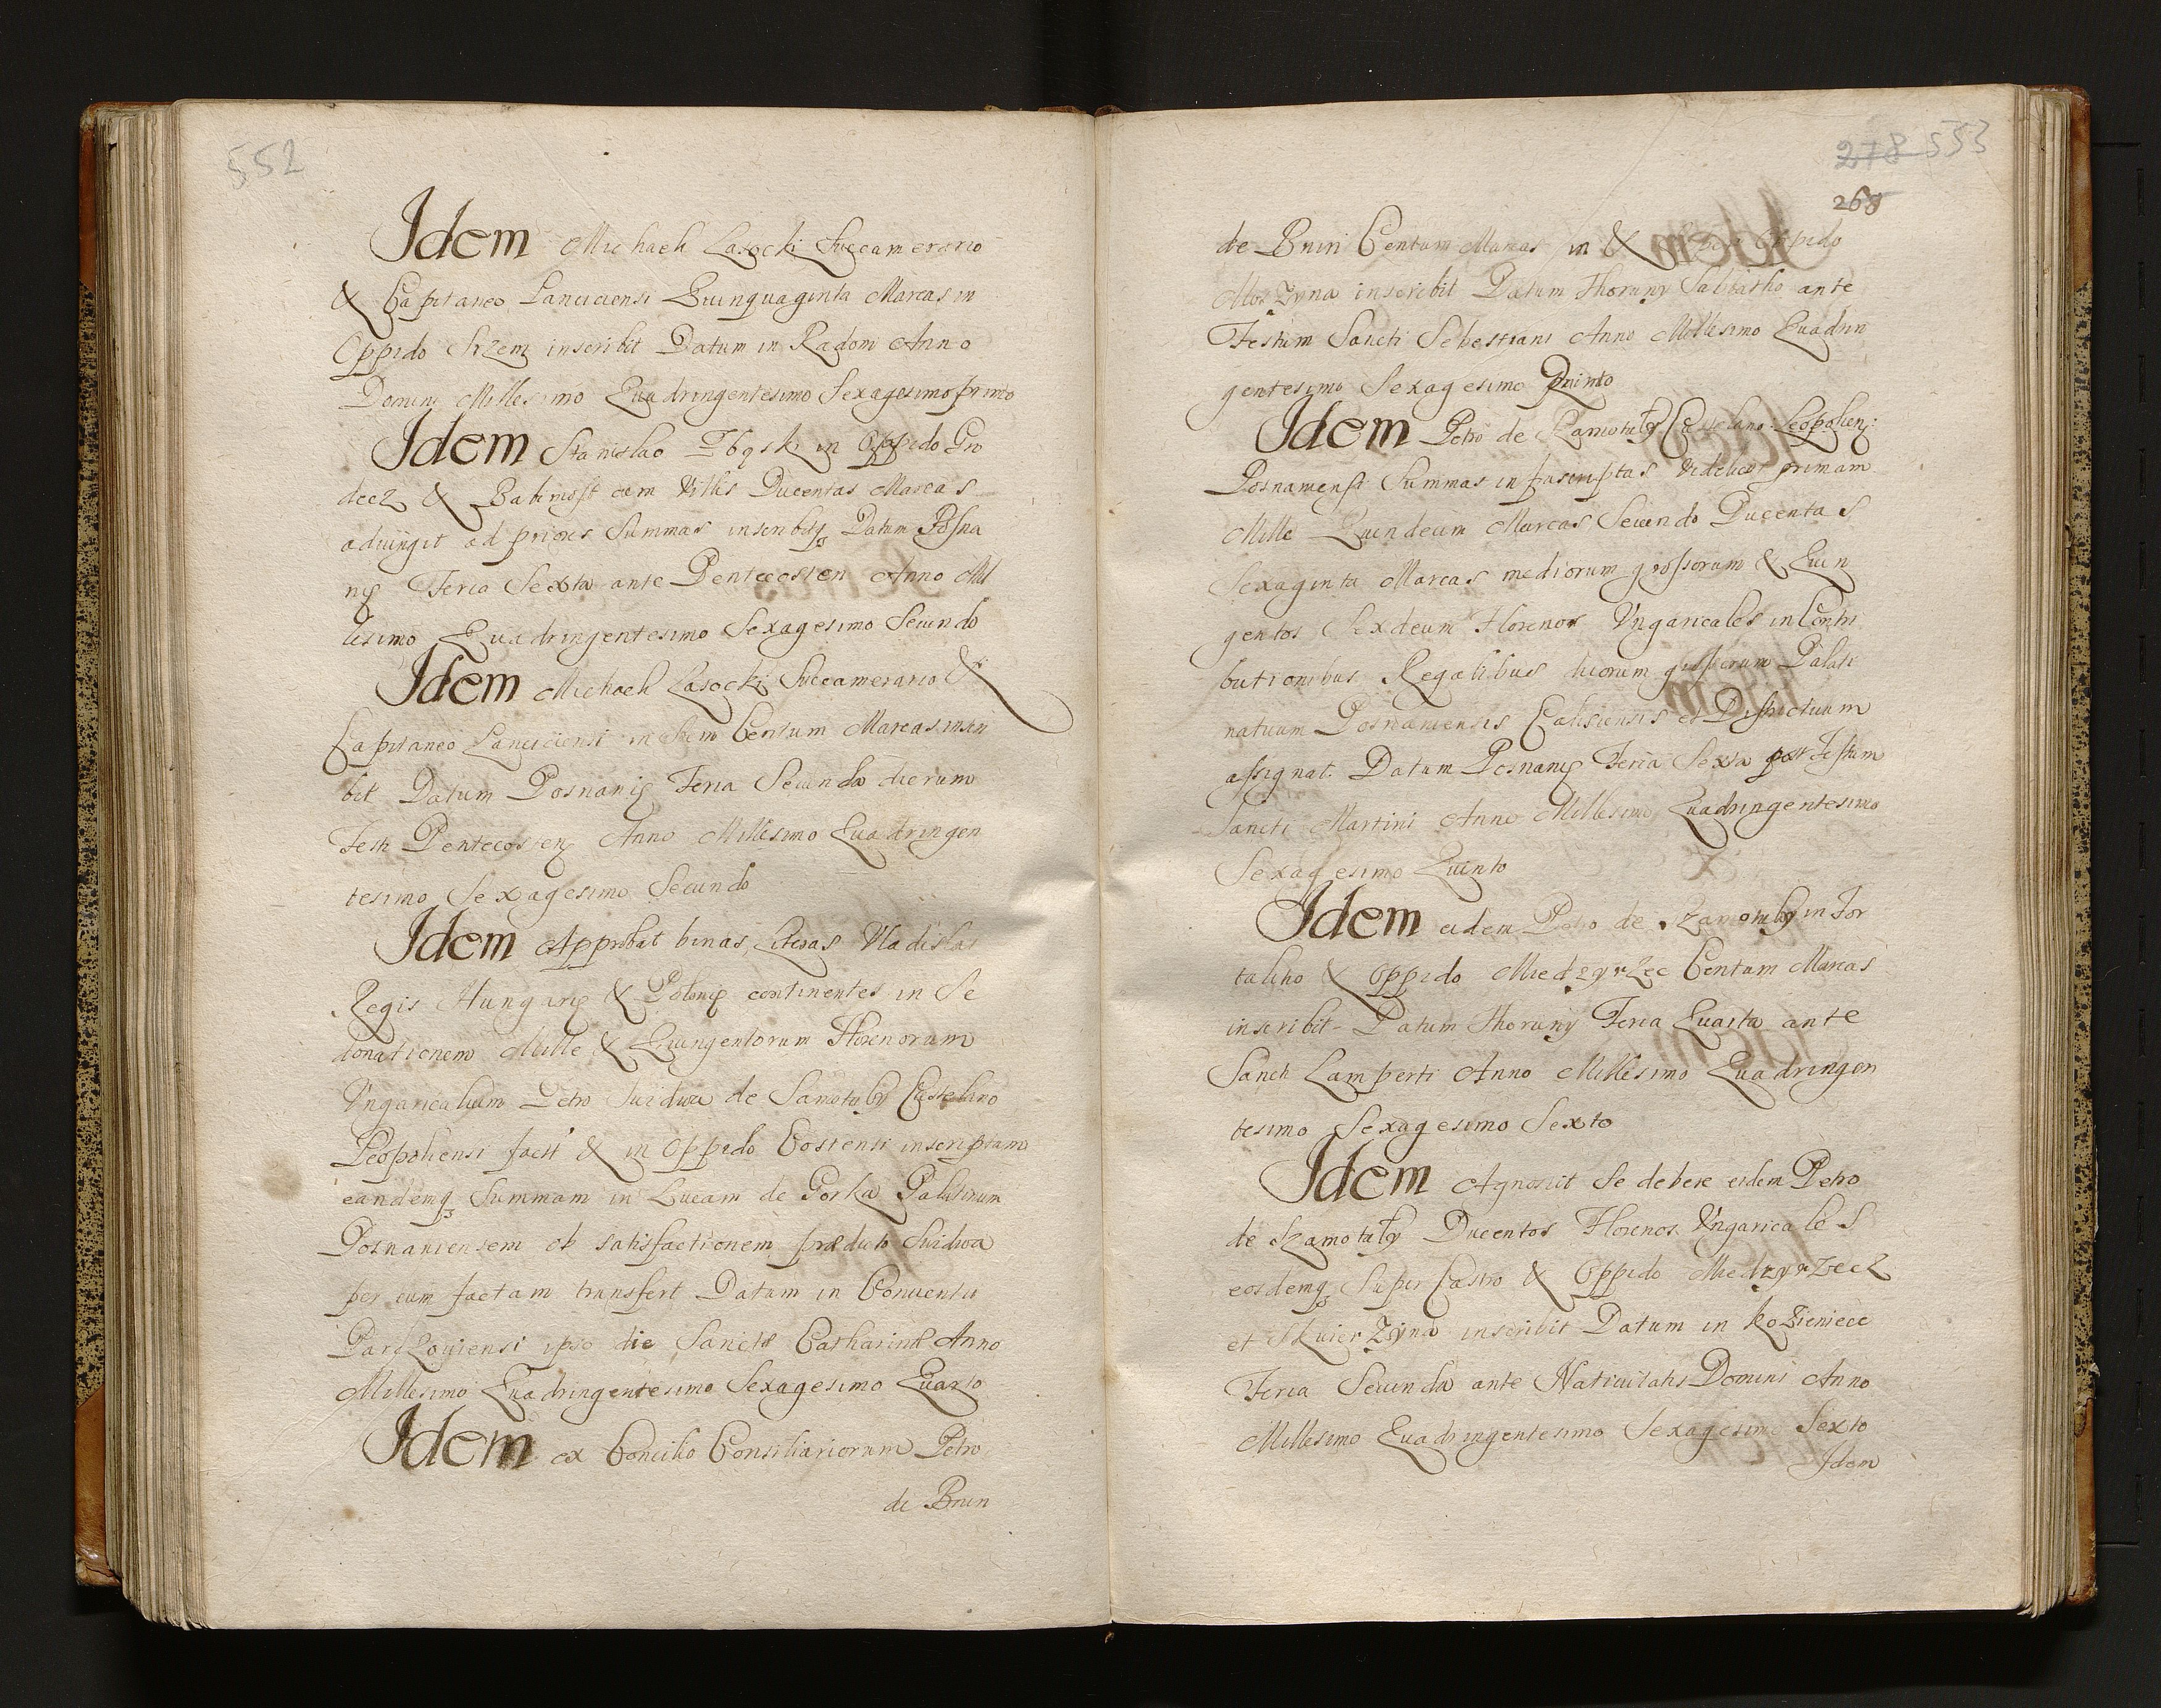 552
Idem Michaeli Lasocki Succamerario
& Capitaneo Lanciciensi Quinquaginta Marcas in
Oppido Srzem inscribit Datum in Radom Anno
Domini Millesimo Quadringentesimo Sexagesimo primo
Idem Stanislao Zbąski in Oppido Gro
decz & Babimost cum Villis Ducentas Marcas
adiungit ad priores Summas inscribitq Datum Posna
nię Feria Sexta ante Pentecosten Anno Mil
lesimo Quadringentesimo Sexagesimo Secundo
Idem Michaeli Lasocki Succamerario &
Capitaneo Lanciciensi in Srem Centum Marcas inscri
bit Datum Posnanię Feria Secunda dierum
Festi Pentecosten Anno Millesimo Quadringen
tesimo Sexagesimo Secundo
Idem Approbat binas Literas Vladislai
Regis Hungarię & Polonię continentes in Se
donationem Mille & Quingentorum Florenorum
Vngaricalium Petro Suidwa de Samotuly Castellano
Leopoliensi facti & in Oppido Costensi inscriptam
eandemq Summam in Lucam de Gorka Palatinum
Posnaniensem ob satisfactionem prædicto Suidwa
per eum factam transfert Datum in Conuentu
ipso die Sanctæ Catharinæ Anno
Millesimo Quadringentesimo Sexagesimo Quarto
Idem ex Concilio Consiliariorum Petro
de Bnin
278 553
268
de Bnin Centum Marcas in & Oppido
Moszyna inscribit Datum Thoruny Sabbatho ante
Festum Sancti Sebestiani Anno Millesimo Quadrin
gentesimo Sexagesimo Quinto
Idem Petro de Szamotuly Castelano Leopolien:
Posnaniensi Summas infrascriptas Videlicet primam
Mille Quindecim Marcas Secundo Ducentas
Sexaginta Marcas mediorum grossorum & Quin
gentos Sexdecim Florenos Vngaricales in Contri
butionibus Regalibus duorum grossorum Palati
natuum Posnaniensis Calisiensis et Districtuum
assignat. Datum Posnanię Feria Sexta post Festum
Sancti Martini Anno Millesimo Quadringentesimo
Sexagesimo Quinto
Idem eidem Petro de Szamotuly in For
talitio & Oppido Miedzyrzec Centum Marcas
inscribit Datum Thoruny Feria Quarta ante
Sancti Lamperti Anno Millesimo Quadringen
tesimo Sexagesimo Sexto
Idem Agnoscit Se debere eidem Petro
de Szamotuly Ducentos Florenos Vngaricales
eosdemq Super Castro & Oppido Miedzyrzecz
et Skwierzyna inscribit Datum in Kozieniece
Feria Secunda ante Natiuitatis Domini Anno
Millesimo Quadringentesimo Sexagesimo Sexto
Idem